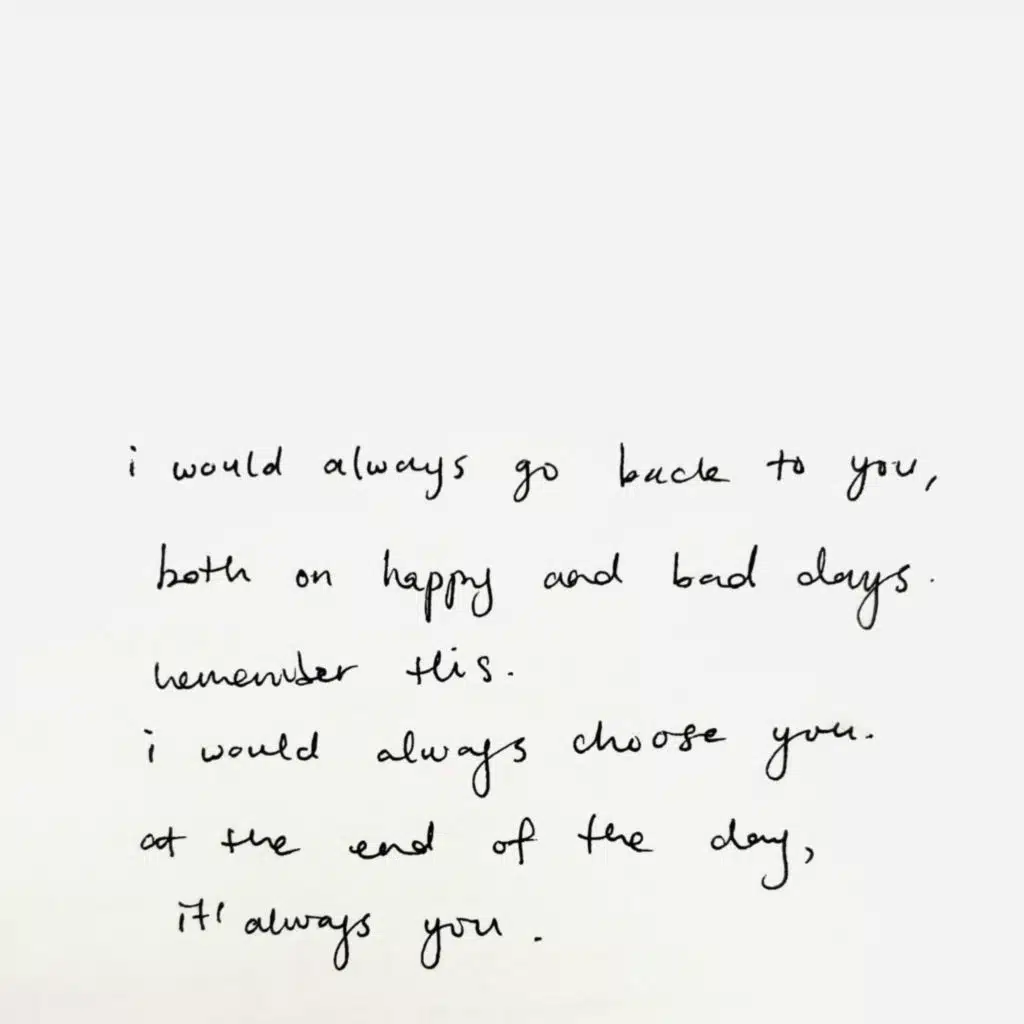 i would always go back to you,
both on happy and bad days.
remember this.
i would always choose you.
at the end of the day,
it' always you.